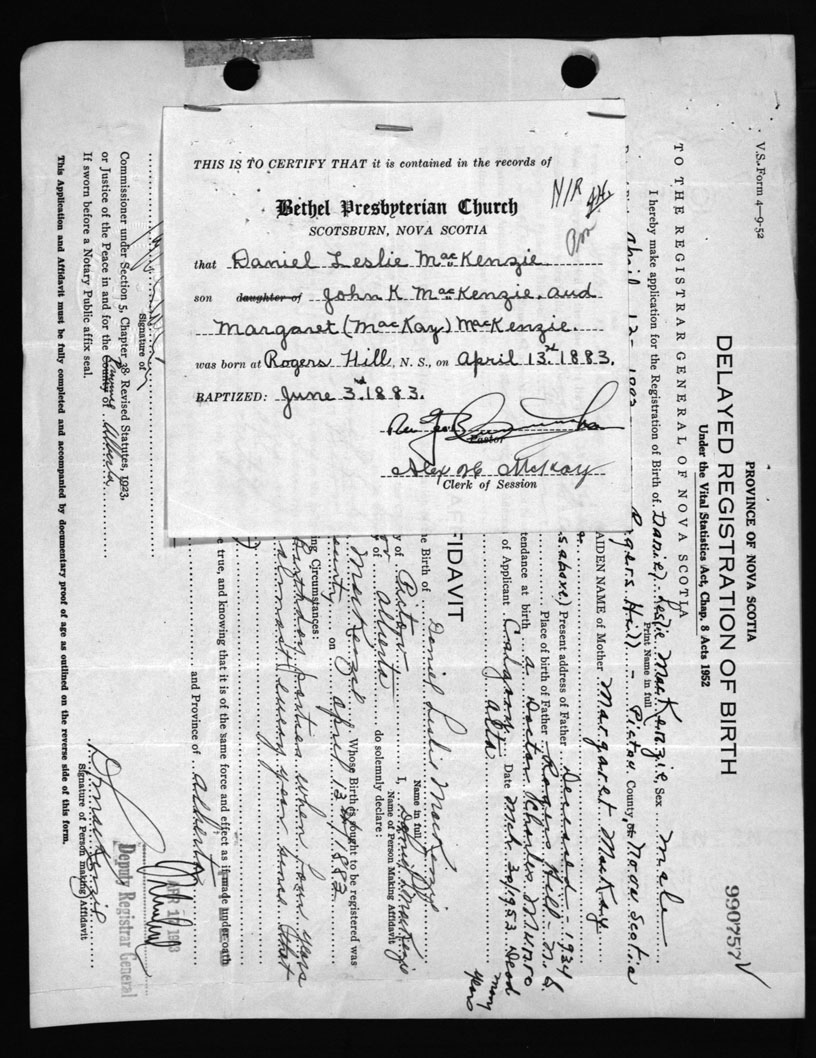 THIS IS TO CERTIFY THAT it is contained in the records of
Bethel Presbyterian Church
SCOTSBURN, NOVA SCOTIA
N/R
that Daniel Leslie MacKenzie
son daughter of John K MacKenzie. and
Margaret (MacKay) MacKenzie.
was born at Rogers Hill, N. S., on April 13th 1883.
BAPTIZED: June 3rd 1883.
Rev Geo B
Pastor
Alex McKay
Clerk of Session
V.S. Form 4-9-52
PROVINCE OF NOVA SCOTIA
DELAYED REGISTRATION OF BIRTH
Under the Vital Statistics Act, Chap. 8 Acts 1952
990757
TO THE REGISTRAR GENERAL OF NOVA SCOTIA
I hereby make application for the Registration of Birth of Daniel Leslie MacKenzie, Sex male
Print Name in full
April Rogers Hill - Pictou County, Nova Scotia
AIDEN NAME of Mother Margaret McKay
s above.) Present address of Father Deceased - 1934
Place of birth of Father Rogers Hill - N.S.
tendance at birth a Doctor Charles Munro
Dead many years
of Applicant Calgary Alta Date Mch 20/1953
FIDAVIT
e Birth of Daniel Leslie MacKenzie
Name in full
y of Pictou I, Daniel MacKenzie
Name of Person Making Affidavit
of Alberta do solemnly declare:
MacKenzie Whose Birth is sought to be registered was
unty on April 13th 1883
ing Circumstances:
Birthday parties when four years
almost every year since that
e true, and knowing that it is of the same force and effect as if made under oath
and Province of Alberta
Signature of
D. MacKenzie
Signature of Person making Affidavit
Deputy Registrar General
Commissioner under Section 5, Chapter 38 Revised Statutes, 1923,
or Justice of the Peace in and for the County of Alberta
If sworn before a Notary Public affix seal.
This Application and Affidavit must be fully completed and accompanied by documentary proof of age as outlined on the reverse side of this form.